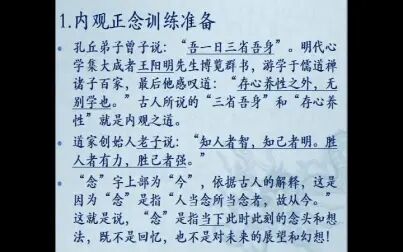 1.内观正念训练准备
• 孔丘弟子曾子说：“吾一日三省吾身”。明代心
学集大成者王阳明先生博览群书，游学于儒道禅
诸子百家，最后他感叹道：“存心养性之外，无
别学也。”古人所说的“三省吾身”和“存心养
性”就是内观之道。
• 道家创始人老子说：“知人者智，知己者明。胜
人者有力，胜己者强。”
• “念”字上部为“今”，依据古人的解释，这是
因为“念”是指“人当念所当念者，故从今。”
这就是说，“念”是指当下此时此刻的念头和想
法，既不是回忆，也不是对未来的展望和幻想！